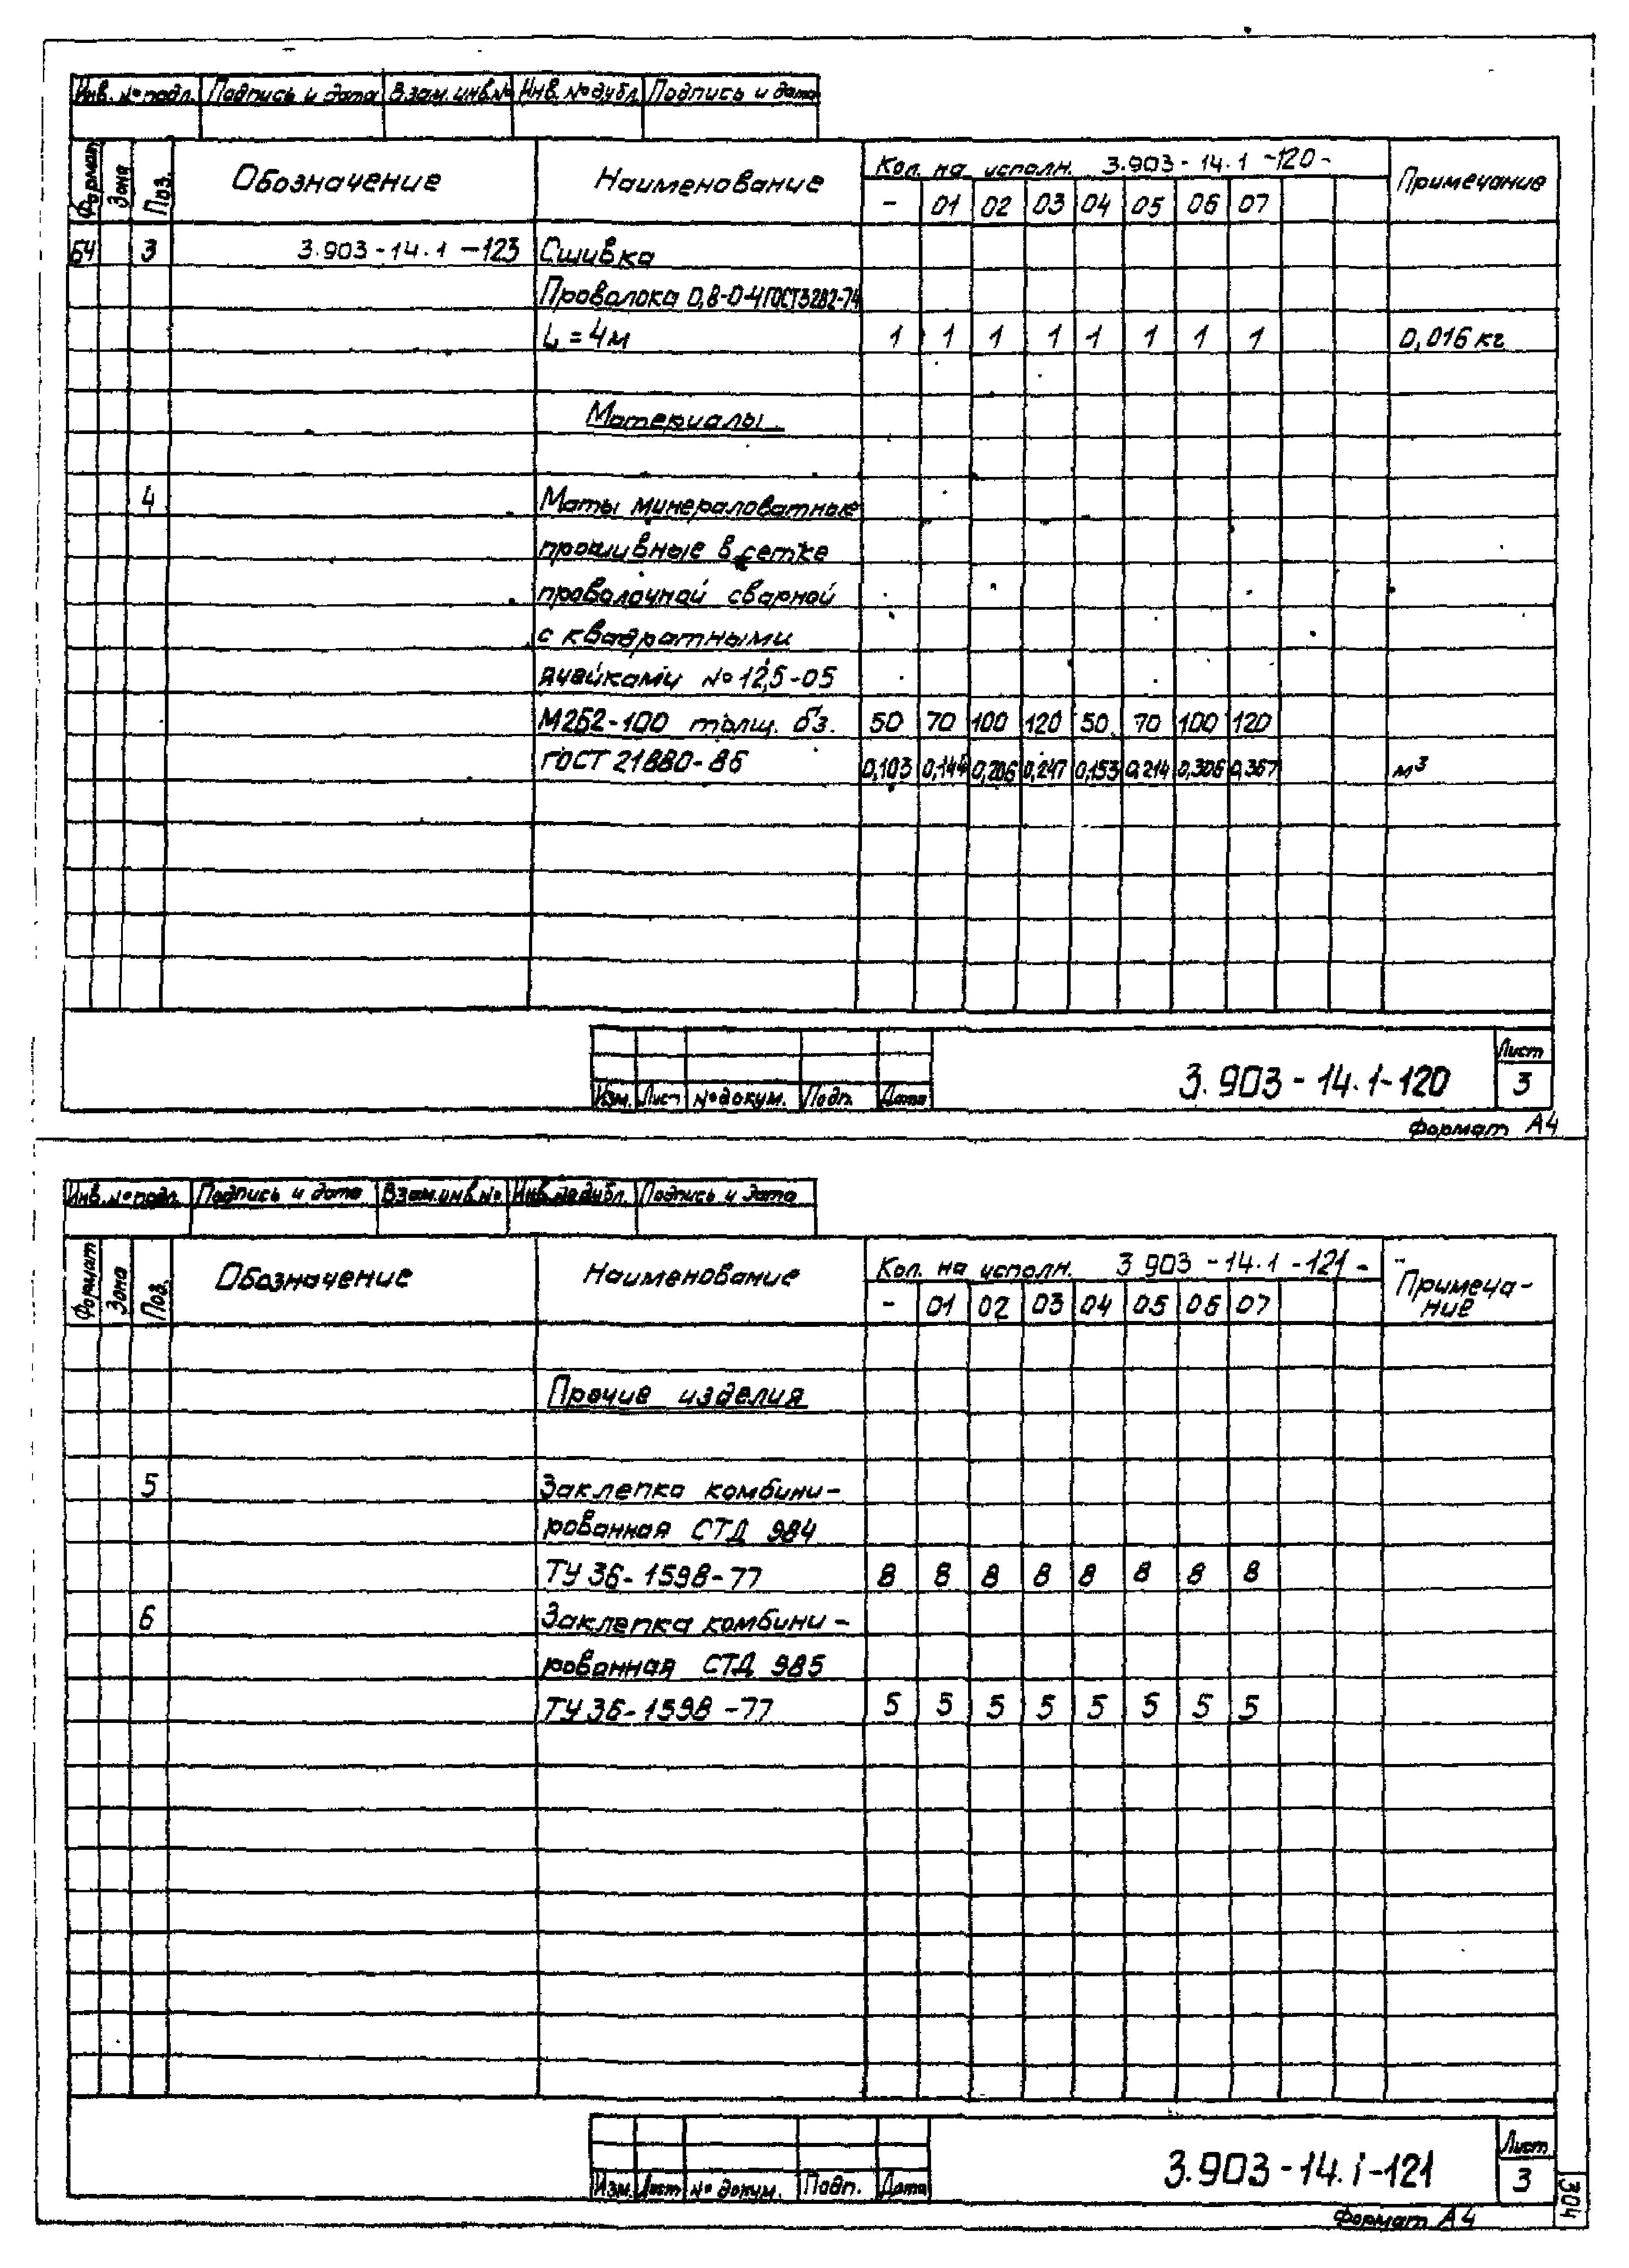 Инв. № подл. Подпись и дата Взам. инв № Инв. № дубл. Подпись и дата
Формат Зона Поз. Обозначение Наименование Кол. на исполн. 3.903-14.1-120- Примечание
- 01 02 03 04 05 06 07
БЧ 3 3.903-14.1-123 Сшивка
Проволока 0,8-0-4 ГОСТ3282-74
L = 4м 1 1 1 1 1 1 1 1 0,016 кг
Материалы
4 Маты минераловатные
прошивные в сетке
проволочной сварной
с квадратными
ячейками №12,5-05
М2Б2-100 толщ. бз. 50 70 100 120 50 70 100 120
ГОСТ 21880-86 0,103 0,144 0,206 0,247 0,153 0,214 0,306 0,367 м³
Изм. Лист № докум. Подп. Дата
3.903-14.1-120
Лист
3
Формат А4
Инв. № подл. Подпись и дата Взам. инв № Инв. № дубл. Подпись и дата
Формат Зона Поз. Обозначение Наименование Кол. на исполн. 3.903-14.1-121- Примеча-
ние
- 01 02 03 04 05 06 07
Прочие изделия
5 Заклепка комбини-
рованная СТД 984
ТУ 36-1598-77 8 8 8 8 8 8 8 8
6 Заклепка комбини-
рованная СТД 985
ТУ 36-1598-77 5 5 5 5 5 5 5 5
Изм. Лист № докум. Подп. Дата
3.903-14.1-121
Лист
3
Формат А4
304